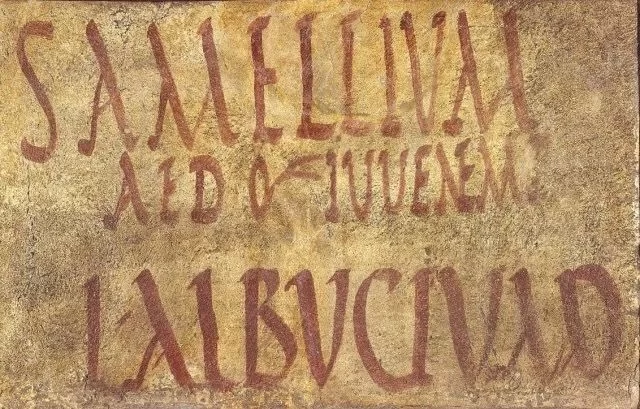 SAMELLIVM
AED OF IVVENEM
LALBVCIVAD